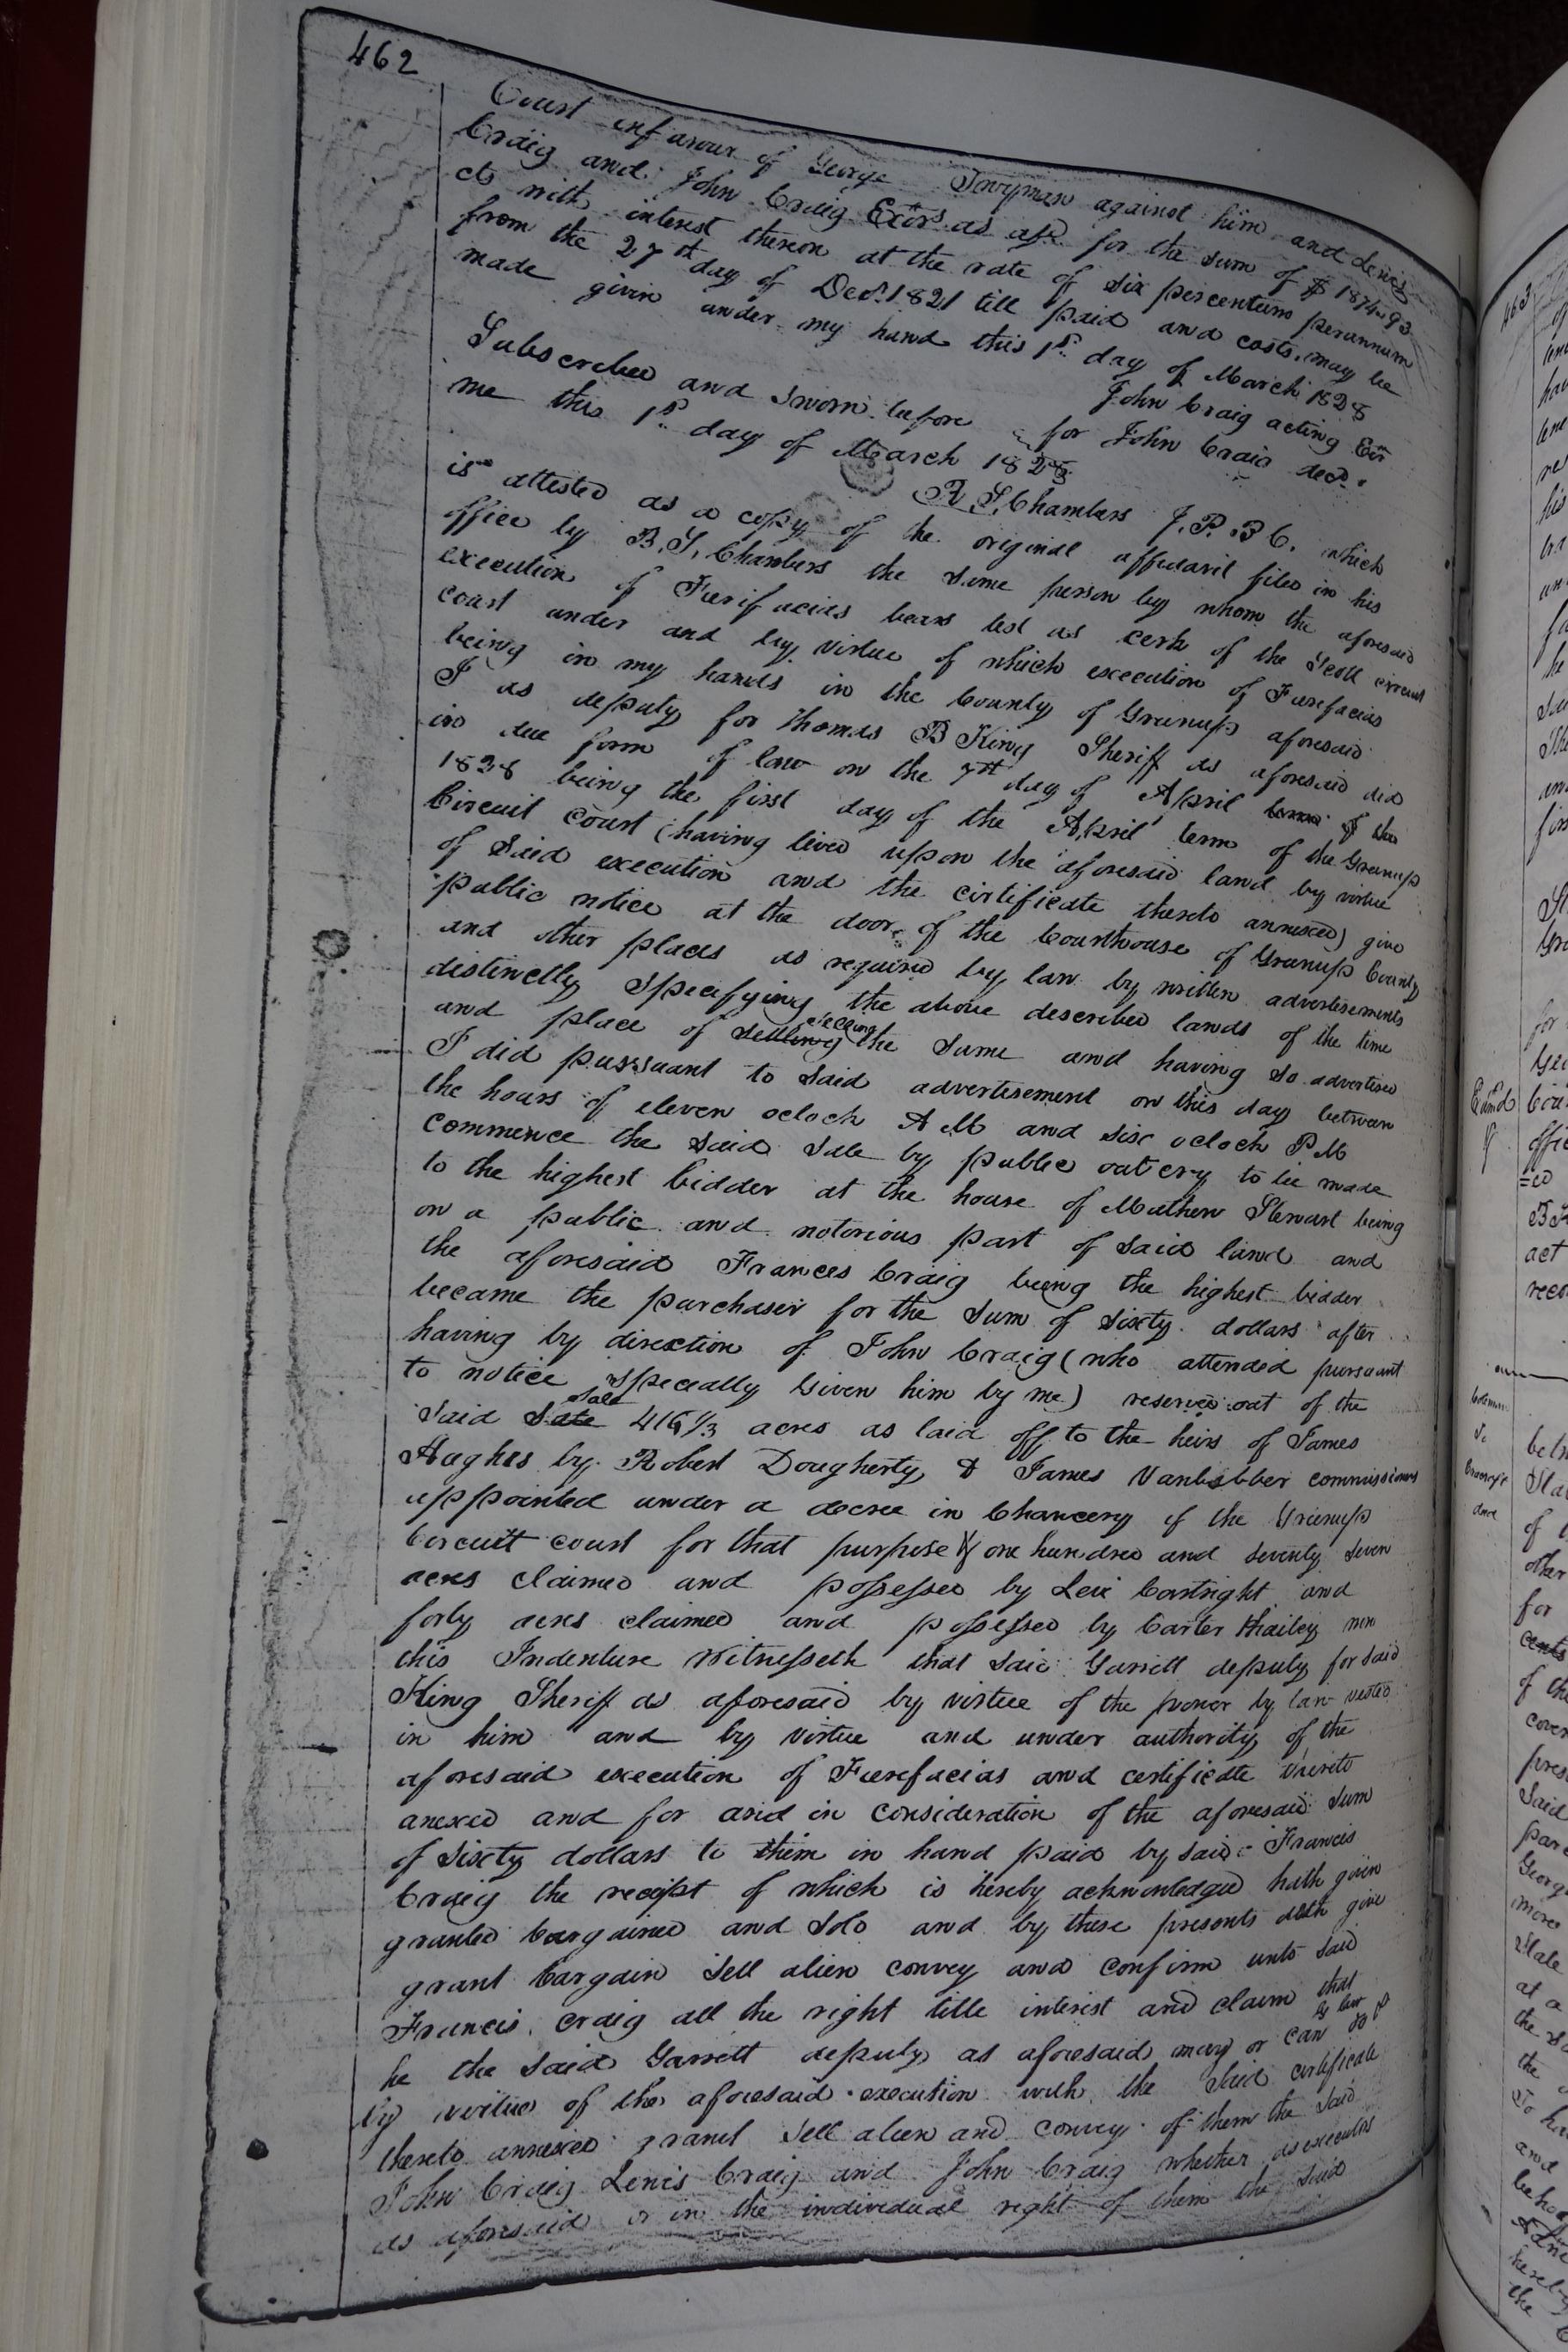 462
Court infavour of George Twyman against him and Lewis
Craig and John Craig Exōrs as afd for the sum of $ 1874-93
cts with interest thereon at the rate of six percentum perannum
from the 27th day of Decr. 1821 till paid and costs, may be
made given under my hand this 1st day of March 1828
John Craig acting Exr
Subscribed and Sworn before for John Craig decd.
me this 1st day of March 1828
R S, Chambers J. P. B C. which
is attested as a copy of the original affidavit filed in his
office by B. S, Chambers the same person by whom the aforesaid
execution of Fierifacias bears test as cerk of the Scott circuit
court under and by virtue of which execution of Fierefacias
being in my hands in the County of Greenup aforesaid
I as deputy for Thomas B King Sheriff as aforesaid did
in due form of law on the 7th day of April
1828 being the first day of the April term of the Greenup
Circuit court (having levied upon the aforesaid land by virtue
of said execution and the cirtificate thereto annexed) give
public notice at the door of the Courthouse of Greenup County
and other places as required by law by written advertisements
distinctly Specifying the above described lands of the time
and place of selling the same and having so advertised
I did pursuant to said advertisement on this day between
the hours of eleven oclock A M and six oclock P. M
commence the said sale by public out cry to be made
to the highest bidder at the house of Mathew Stewart being
on a public and notorious part of said land and
the aforesaid Frances Craig being the highest bidder
became the purchaser for the sum of sixty dollars after
having by direction of John Craig (who attended pursuant
to notice specially given him by me) reserved out of the
said sale 416 1/3 acres as laid off to the heirs of James
Hughes by Robert Dougherty & James Vanbibber commissioners
appointed under a decree in Chancery of the Greenup
Circuit court for that purpose & one hundred and seventy seven
acres claimed and possessed by Levi Cartright and
forty acres claimed and possessed by Carter Hailey now
this Indenture Witnesseth that said Garrett deputy for said
King Sheriff as aforesaid by virtue of the power by law vested
in him and by virtue and under authority of the
aforesaid execution of Fierefacias and certificate thereto
anexed and for and in consideration of the aforesaid sum
of sixty dollars to him in hand paid by said Francis
Craig the receipt of which is hereby acknowledged hath given
granted bargained and sold and by these presents doth give
grant bargain sell alien convey and confirm unto said
Francis Craig all the right title interest and claim that
he the said Garrett deputy as aforesaid may or can by law
by virtue of the aforesaid execution with the said certificate
thereto annexed grant sell alien and convey of them the said
John Craig Lewis Craig and John Craig whether as executors
as aforesaid or in the individual right of them the said
463